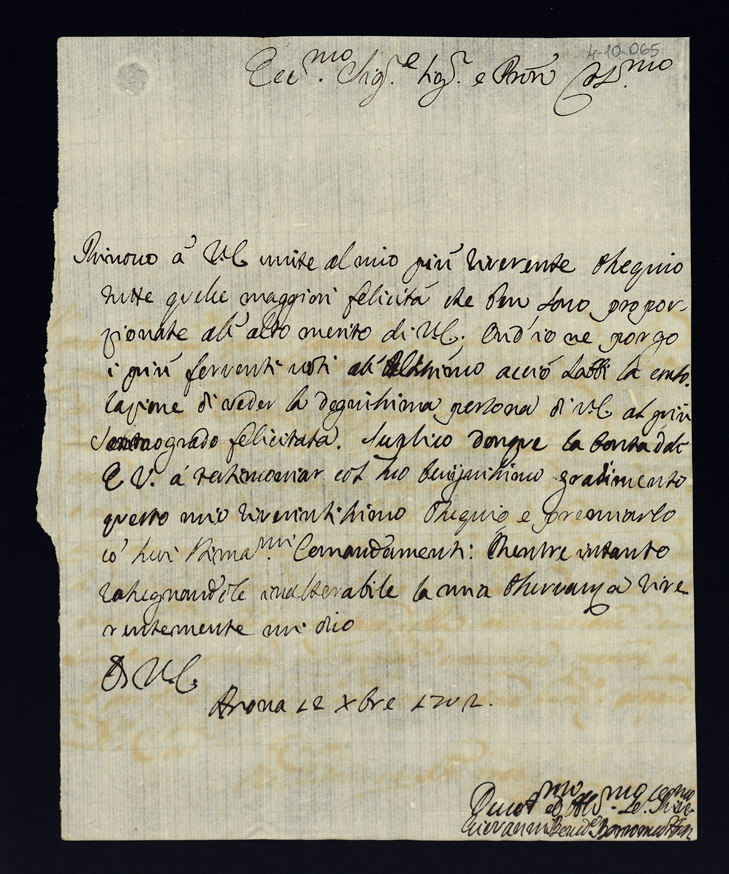 4-10-065
Ecc.mo Sig.e Sig.r e Pron Col.mo
Rinouo à V.E. unite al mio più riverente ossequio
tutte quelle maggiori felicità che ben sono propor-
zionate all'alto merito di V.E. Ond'io ne porgo
i più ferventi voti all'Altissimo acciò habbi la conso-
lazione di veder la degnissima persona di V.E. al più
grado felicitata. Suplico donque la bontà dell'
E.V. à testimoniar col suo benignissimo gradimento
questo mio riverentissimo ossequio e premiarlo
co' suoi stima.mi Comandamenti: Mentre intanto
rassegnandole inalterabile la mia osseruanza rive
rentemente mi dico
D V.E.
Arona 12 Xbre 1702.
Deuot.mo et Obl.mo
Giovanni Borromeo